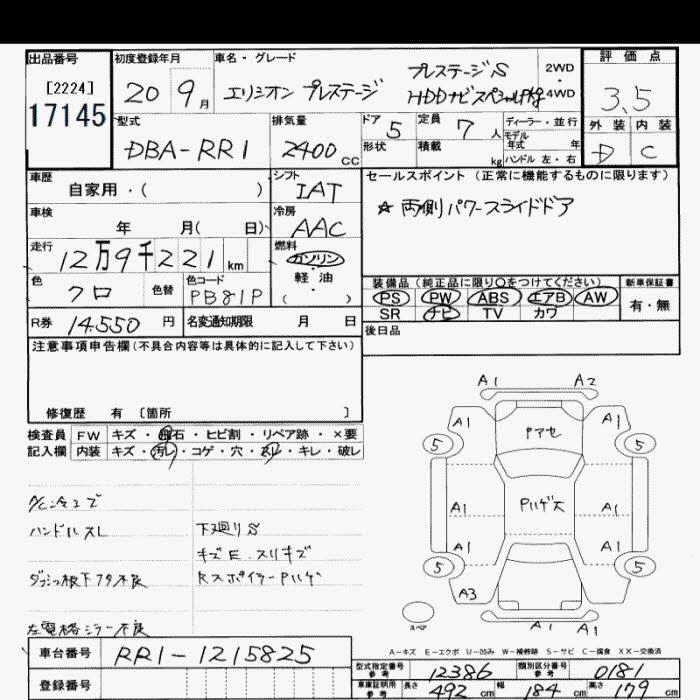 出品番号 初度登録年月 車名・グレード 評価点
[2224] 20 9月 エリシオン プレステージ プレステージS 2WD
HDDナビスペシャルPkg 4WD 3.5
17145 型式 排気量 ドア 5 定員 7人 ディーラー・並行 外装 内装
モデル年式 年
DBA-RR1 2400cc 形状 積載 kg ハンドル 左・右 D C
車歴 シフト セールスポイント (正常に機能するものに限ります)
自家用・( ) IAT ☆両側パワースライドドア
車検 冷房
年 月( 日) AAC
走行 燃料
12万9千221km ガソリン
色 色替 色コード 軽油 装備品 (純正品に限り○をつけてください) 新車保証書
クロ PB81P ( ) PS PW ABS エアB AW 有・無
SR ナビ TV カワ
R券 14550円 名変通知期限 月 日 後日品
注意事項申告欄(不具合内容等は具体的に記入して下さい)
修復歴 有 [箇所 ]
検査員 FW キズ・飛石・ヒビ割・リペア跡・×要
記入欄 内装 キズ・汚れ・コゲ・穴・スレ・キレ・破レ
A1 A2
A1 A1
5 Pアセ 5
A1 Pハゲ大 A1
A1 A1
5 5
A3
A1 A1
スペア
ハンドルスレ 下廻りS
キズE.スリキズ
RスポイラーPハゲ
左電格ミラー不良
A-キズ E-エクボ U-凹み W-補修跡 S-サビ C-腐食 XX-交換済
車台番号 RR1-1215825
型式指定番号 参考 12386 類別区分番号 参考 0181
登録番号
車庫証明用 参考 長さ 492cm 幅 184cm 高さ 179cm